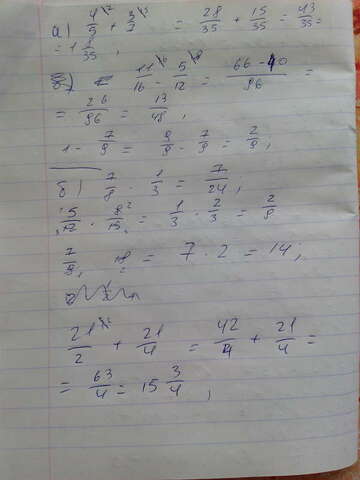 а) 4/5 \7 + 3/7 \5 = 28/35 + 15/35 = 43/35 =
= 1 8/35 ,
б) 11/16 \6 - 5/12 \8 = 66-40/96 =
= 26/96 = 13/48 ,
1 - 7/9 = 9/9 - 7/9 = 2/9 ;
б) 7/8 · 1/3 = 7/24 ;
5/12 · 8/15 = 1/3 · 2/3 = 2/9
7/9 , 18 = 7 · 2 = 14 ;
21/2 + 21/4 = 42/4 + 21/4 =
= 63/4 = 15 3/4 ;